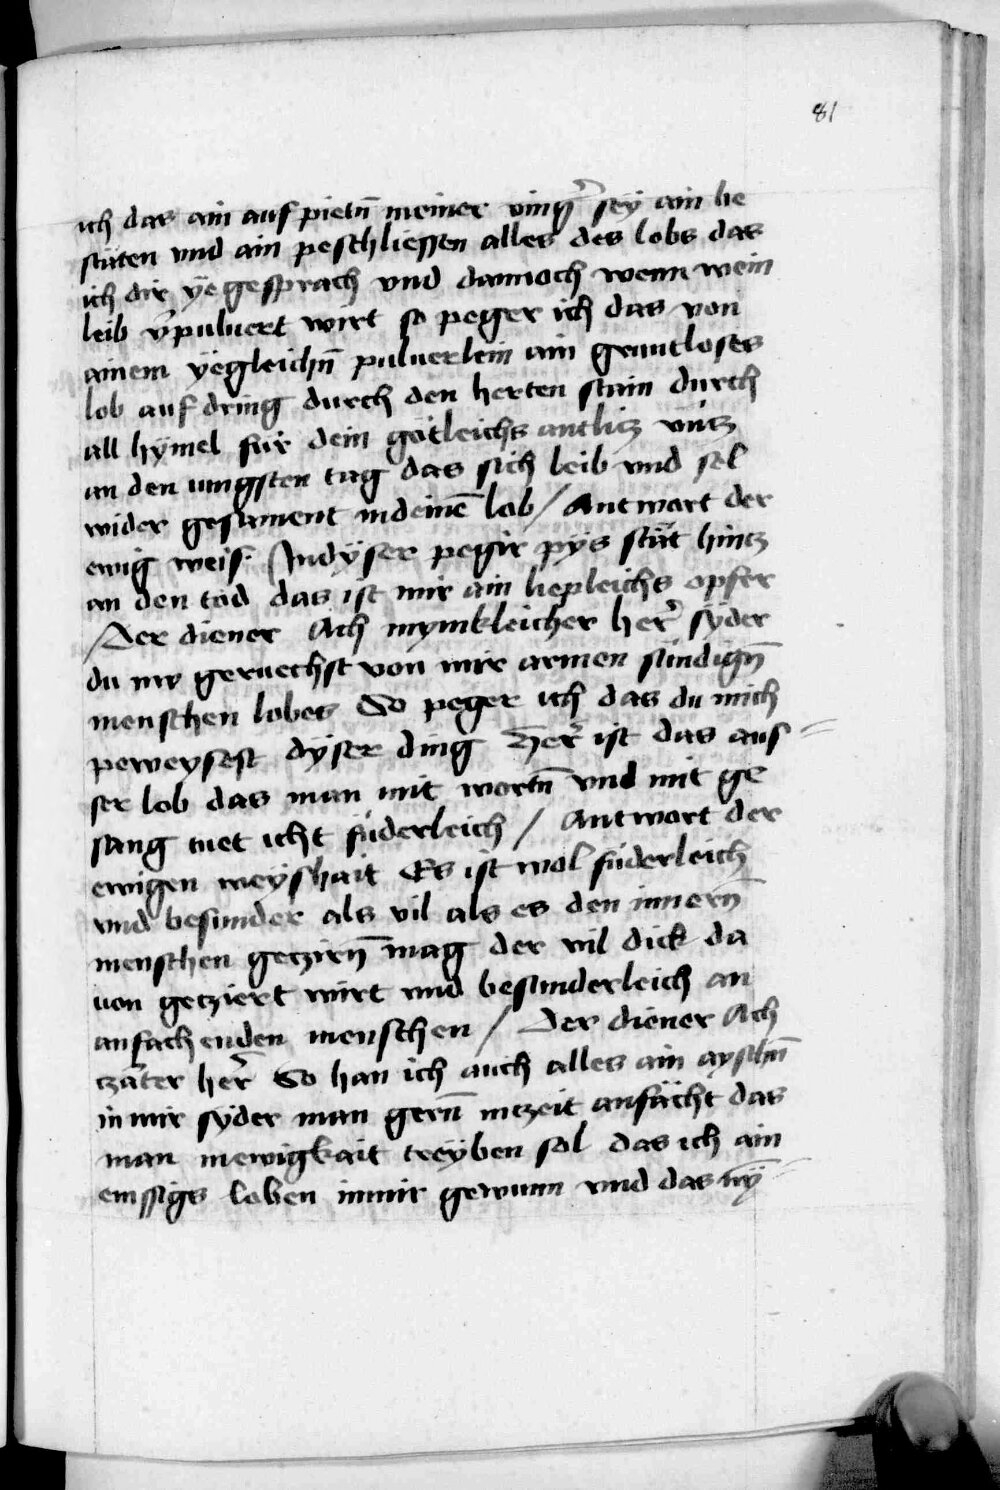 81
ich das ain auf pietn̄ meiner ving̾ sey ain be
stäten vnd ain peschliessen alles des lobs das
ich dir ÿe gesprach vnd dannoch wenn mein
leib v̾puluert wirt so peger ich das von
ainem ÿegleichn̄ puluerlein ain gruntloses
lob auf dring durch den herten stain durch
all hÿmel für dein götleichs antlicz vncz
an den iungsten tag das sich leib vnd sel
wider gesament in deinē lob / Antwort der
ewig weis Indÿser pegir pÿs stät hincz
an den tod das ist mir ain liepleichs opfer
/ Der diener Ach mynikleicher her̾ sÿder
du nw geruechst von mir armen sündign̄
menschen lobes So peger ich das du mich
peweysest dÿser ding Her̾ ist das aus
ser lob das man mit wortn̄ vnd mit ge
sang tuet icht füderleich / Antwort der
ewigen weyshait Es ist wol füderleich
vnd besunder als vil als es den innern̄
menschen geczirn̄ mag der vil dick da
von gecziert wirt vnd besunderleich an
anfachenden menschen / Der diener Ach
czater her̾ So han ich auch alles ain ayschn̄
in mir sÿder man gern̄ inczeit anfächt das
man inewigkait treÿben sol das ich ain
emssigs loben inmir gewunn vnd das nÿ